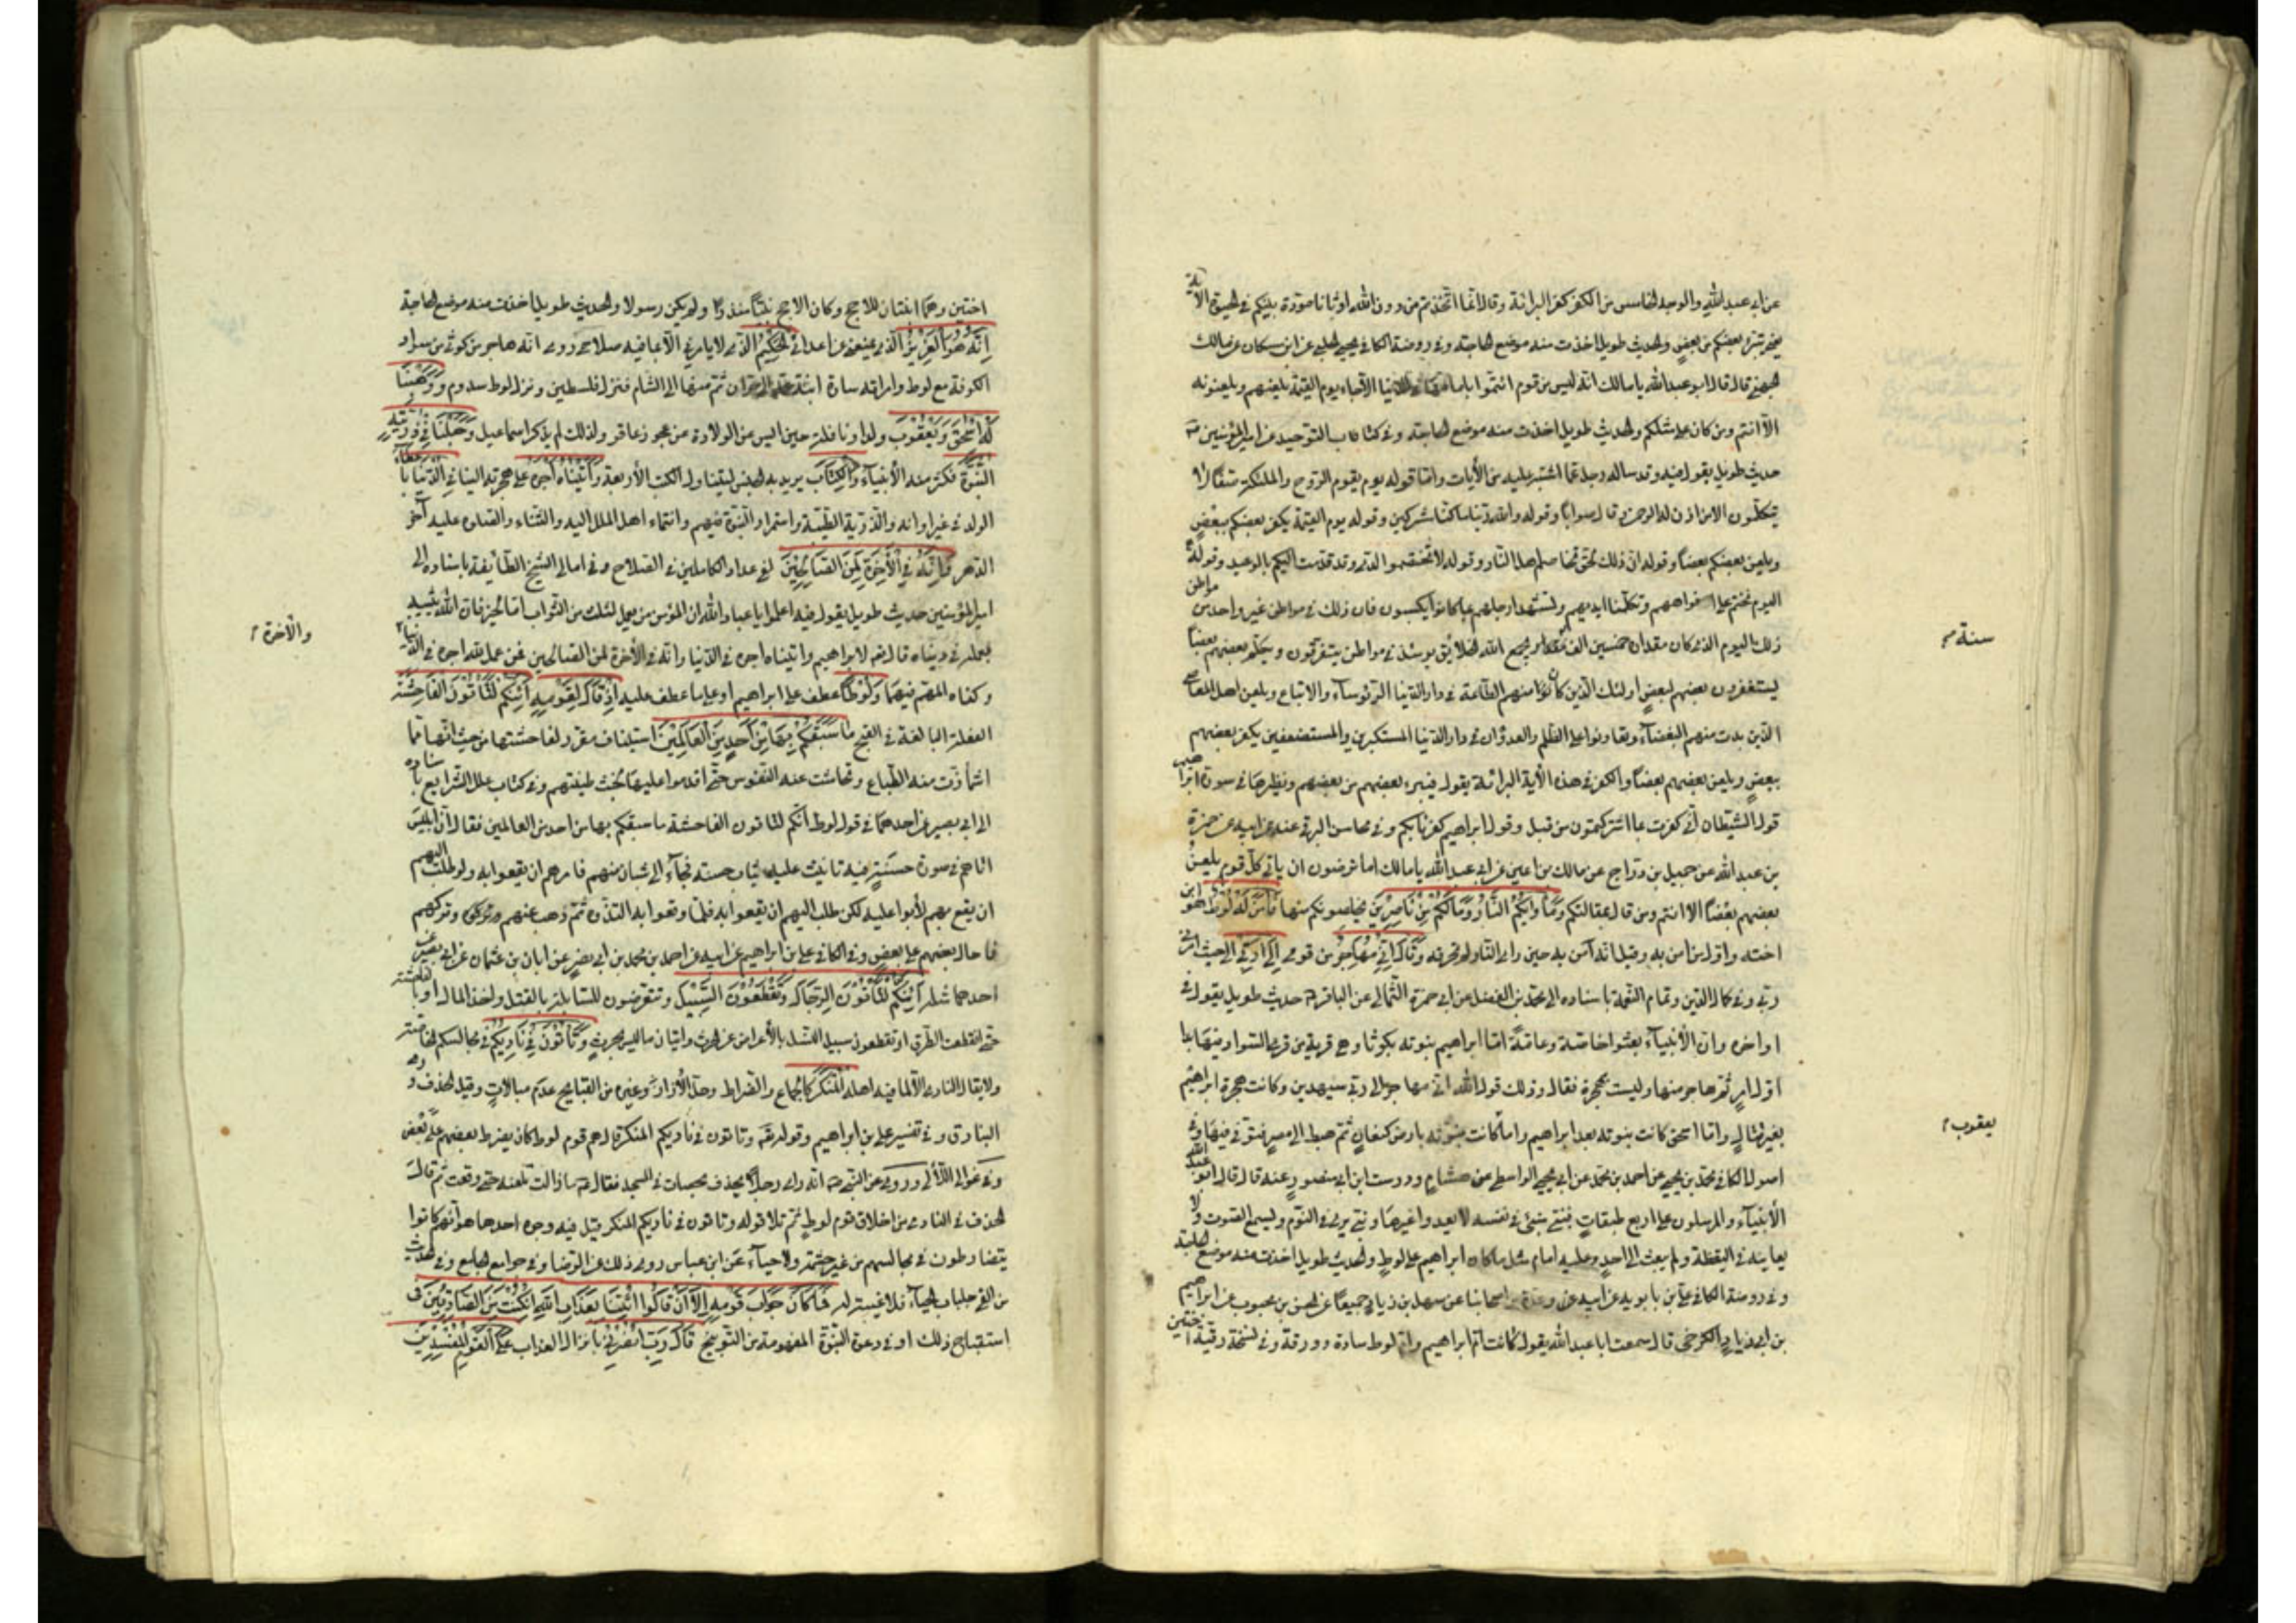 عن ابي عبدالله والوجه الخامس من الكفر كفر البرائة وقال انما اتخذتم من دون الله اوثانا مودة بينكم في الحيوة الآية
يعني تتبرء بعضكم من بعض والحديث طويل اخذت منه موضع الحاجة وفي روضة الكافي يحيى الحلبي عن ابن مسكان عن مالك
الجهني قال قال ابو عبدالله يا مالك انه ليس من قوم ائتموا بامام في الدنيا الا جاء يوم القيمة يلعنهم ويلعنونه
الا انتم ومن كان على مثلكم والحديث طويل اخذت منه موضع الحاجة وفي كتاب التوحيد عن امير المؤمنين
حديث طويل يقول فيه وقد ساله رجل عما اشتبه عليه من الأيات واما قوله يوم يقوم الروح والملئكة صفا لا
يتكلمون الا من اذن له الرحمن وقال صوابا وقوله والله ربنا ما كنا مشركين وقوله يوم القيمة يكفر بعضكم ببعض
ويلعن بعضكم بعضا وقوله ان ذلك لحق تخاصم اهل النار وقوله لا تختصموا لدي وقد قدمت اليكم بالوعيد وقوله
اليوم نختم على افواههم وتكلمنا ايديهم وتشهد ارجلهم بما كانوا يكسبون فان ذلك في مواطن غير واحد من مواطن
ذلك اليوم الذي كان مقداره خمسين الف سنة يجمع الله الخلائق يومئذ في مواطن يتفرقون ويكلم بعضهم بعضا
ليستغفرون بعضهم لبعض اولئك الذين كانوا منهم الطاعة في دار الدنيا الرؤساء والاتباع ويلعن اهل المعاصي
الذين بدت منهم البغضاء وتعاونوا على الظلم والعدوان في دار الدنيا المستكبرين والمستضعفين يكفر بعضهم
ببعض ويلعن بعضهم بعضا والكفر في هذه الأية البرائة يقول فيبرء بعضهم من بعضهم ونظيرها في سورة ابراهيم
قول الشيطان اني كفرت بما اشركتمون من قبل وقول ابراهيم كفرنا بكم وفي محاسن البرقي عنه عن ابيه عن حمزة
بن عبدالله عن جميل بن دراج عن مالك بن اعين عن ابي عبدالله يا مالك اما ترضون ان ياتي كل قوم يلعن
بعضهم بعضا الا انتم ومن قال بمقالتكم وَمَأْوٰيكُمُ النَّارُ وَمَا لَكُمْ مِنْ نَاصِرِينَ يخلصونكم منها فَآمَنَ لَهُ لُوطٌ هو ابن
اخته واول من امن به وقيل انه آمن به حين راى النار لم تحرقه وَقَالَ اِنِّي مُهَاجِرٌ من قومي اِلٰى رَبِّي الى حيث امرني
ربي وفي كمال الدين وتمام النعمة باسناده الى محمد بن الفضل عن ابي حمزة الثمالي عن الباقر حديث طويل يقول في
اواخره وان الأنبياء بعثوا خاصة وعامة اما ابراهيم نبوته بكوثا وهي قرية من قرى السواد فيها بدا
اول امره ثم هاجر منها وليست بهجرة فقال وذلك قول الله اني مهاجر الى ربي سيهدين وكانت هجرة ابراهيم
بغير قتال واما اسحق كانت نبوته بعد ابراهيم واما كانت نبوته بارض كنعان ثم هبط الى مصر فتوفي فيها وفي
اصول الكافي محمد بن يحيى عن احمد بن محمد عن ابي يحيى الواسطي عن هشام ودرست ابن ابي منصور عنه قال قال ابو عبدالله
الأنبياء والمرسلون على اربع طبقات فنبي منبئ في نفسه لا يعدو غيرها ونبي يرى في النوم ويسمع الصوت ولا
يعاينه في اليقظة ولم يبعث الى احد وعليه امام مثل ما كان ابراهيم على لوط والحديث طويل اخذت منه موضع الحاجة
وفي روضة الكافي علي بن ابراهيم عن ابيه وعدة من اصحابنا عن سهل بن زياد جميعا عن الحسن بن محبوب عن ابراهيم
بن ابي زياد الكرخي قال سمعت ابا عبدالله يقول كانت ام ابراهيم وام لوط سارة وورقة وفي نسخة رقية اختين
سنة
يعقوب
اختين وهما ابنتان للاحج وكان الاحج نبيا منذرا ولم يكن رسولا والحديث طويل اخذت منه موضع الحاجة
اِنَّهُ هُوَ الْعَزِيزُ الذي يمنعني عن اعدائي الْحَكِيمُ الذي لا يامرني الا بما فيه صلاحي روي انه هاجر من كوثى من سواد
الكوفة مع لوط وامراته سارة ابنة عمه الى حران ثم منها الى الشام فنزل فلسطين ونزل لوط سدوم وَوَهَبْنَا
لَهُ اِسْحٰقَ وَيَعْقُوبَ ولدا ونافلة حين ايس عن الولادة من عجوز عاقر ولذلك لم يذكر اسماعيل وَجَعَلْنَا فِي ذُرِّيَّتِهِ
النُّبُوَّةَ فكثر منه الأنبياء وَالْكِتَابَ يريد به الجنس ليتناول الكتب الأربعة وَآتَيْنَاهُ اَجْرَهُ على هجرته الينا فِي الدُّنْيَا باعطاء
الولد في غير اوانه والذرية الطيبة واستمرار النبوة فيهم وانتماء اهل الملل اليه والثناء والصلوة عليه آخر
الدهر وَاِنَّهُ فِي الْآخِرَةِ لَمِنَ الصَّالِحِينَ لفي عداد الكاملين في الصلاح وفي امالي الشيخ الطائفة باسناده الى
امير المؤمنين حديث طويل يقول فيه اعلموا يا عباد الله ان المؤمن من يعمل لثلث من الثواب اما لخير فان الله يثيبه
بعمله في دنياه قال الله لابراهيم واتيناه اجره في الدنيا وانه في الأخرة لمن الصالحين فمن عمل لله اجره في الدنيا
والآخرة
وكفاه المهم فيهما وَلُوطًا عطف على ابراهيم او على ما عطف عليه اِذْ قَالَ لِقَوْمِهِ اَئِنَّكُمْ لَتَأْتُونَ الْفَاحِشَةَ
الفعلة البالغة في القبح مَا سَبَقَكُمْ بِهَا مِنْ اَحَدٍ مِنَ الْعَالَمِينَ استيناف مقرر لفاحشتها من حيث انها مما
اشمأزت منه الطباع وتحاشت عنه النفوس حتى اقدموا عليها لخبث طينتهم وفي كتاب علل الشرايع باسناده
الى ابي بصير عن احدهما في قول لوط انكم لتاتون الفاحشة ما سبقكم بها من احد من العالمين فقال ان ابليس
اتاهم في صورة حسنة فيه تانيث عليه ثياب حسنة فجاء الى شبان منهم فامرهم ان يقعوا به ولو طلب اليهم
ان يقع بهم لأبوا عليه لكن طلب اليهم ان يقعوا به فلما وقعوا به التذوه ثم ذهب عنهم وتركهم
فاحال بعضهم على بعض وفي الكافي علي بن ابراهيم عن ابيه عن احمد بن محمد بن ابي نصر عن ابان بن عثمان عن ابي بصير عن
احدهما مثله اَئِنَّكُمْ لَتَأْتُونَ الرِّجَالَ وَتَقْطَعُونَ السَّبِيلَ وتتعرضون للسابلة بالقتل واخذ المال او بالفاحشة
حتى انقطعت الطرق او تقطعون سبيل النسل بالأعراض عن الحرث واتيان ما ليس بحرث وَتَأْتُونَ فِي نَادِيكُمُ في مجالسكم الغاصة
ولا يقال النادي الا لما فيه اهله الْمُنْكَرَ كالجماع والضراط وحل الأزار وغيره من القبايح عدم مبالات وقيل الخذف ورمي
البنادق وفي تفسير علي بن ابراهيم وقوله وتاتون في ناديكم المنكر قال هم قوم لوط كان يضرط بعضهم على بعض
وفي عوالي اللآلي وروي عن النبي انه راى رجلا يخذف بحصات في المسجد فقال ما زالت تلعنه حتى وقعت ثم قال
الخذف في النادي من اخلاق قوم لوط ثم تلا قوله وتاتون في ناديكم المنكر قيل فيه وجوه احدها هو انهم كانوا
يتضارطون في مجالسهم من غير حشمة ولا حياء عن ابن عباس وروي ذلك عن الرضا وفي جوامع الجامع وفي الحديث
من القى جلباب الحياء فلا غيبة له فَمَا كَانَ جَوَابَ قَوْمِهِ اِلَّا اَنْ قَالُوا ائْتِنَا بِعَذَابِ اللهِ اِنْ كُنْتَ مِنَ الصَّادِقِينَ في
استقباح ذلك او في دعوة النبوة المفهومة من التوبيخ قَالَ رَبِّ انْصُرْنِي بانزال العذاب عَلَى الْقَوْمِ الْمُفْسِدِينَ